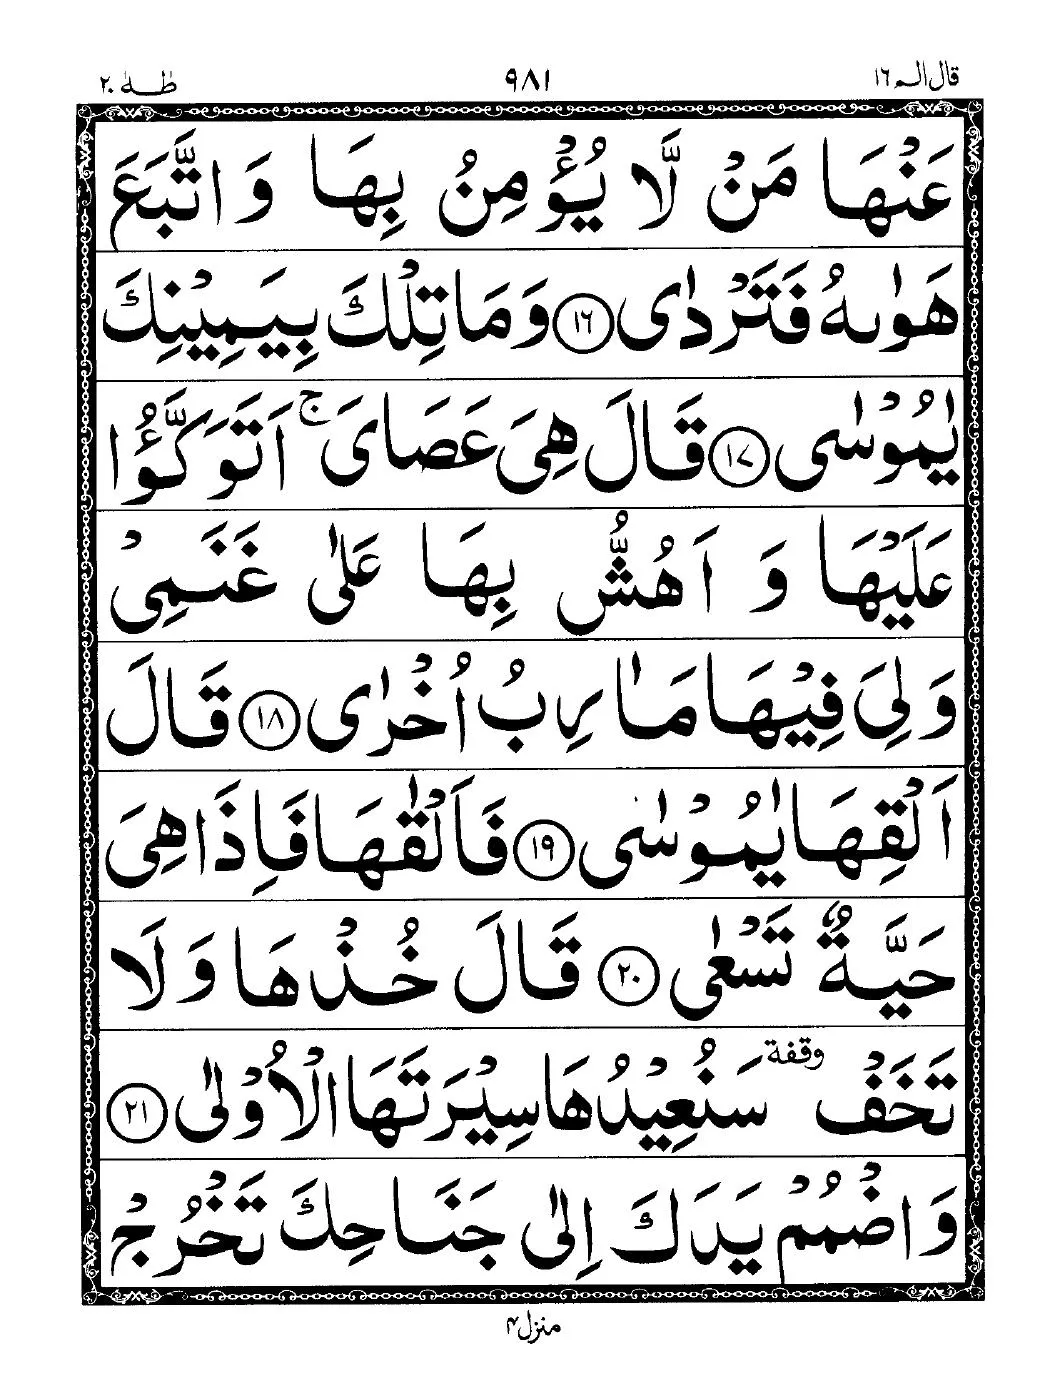 قال الم ١٦ ٩٨١ طٰهٰ ٢٠
عَنْهَا مَنْ لَّا يُؤْمِنُ بِهَا وَاتَّبَعَ
هَوٰىهُ فَتَرْدٰى ﴿١٦﴾ وَمَا تِلْكَ بِيَمِيْنِكَ
يٰمُوْسٰى ﴿١٧﴾ قَالَ هِىَ عَصَاىَ ۚ اَتَوَكَّؤُا
عَلَيْهَا وَ اَهُشُّ بِهَا عَلٰى غَنَمِىْ
وَلِىَ فِيْهَا مَاٰرِبُ اُخْرٰى ﴿١٨﴾ قَالَ
اَلْقِهَا يٰمُوْسٰى ﴿١٩﴾ فَاَلْقٰىهَا فَاِذَا هِىَ
حَيَّةٌ تَسْعٰى ﴿٢٠﴾ قَالَ خُذْهَا وَلَا
تَخَفْ وقفة سَنُعِيْدُهَا سِيْرَتَهَا الْاُوْلٰى ﴿٢١﴾
وَاضْمُمْ يَدَكَ اِلٰى جَنَاحِكَ تَخْرُجْ
منزل ۴